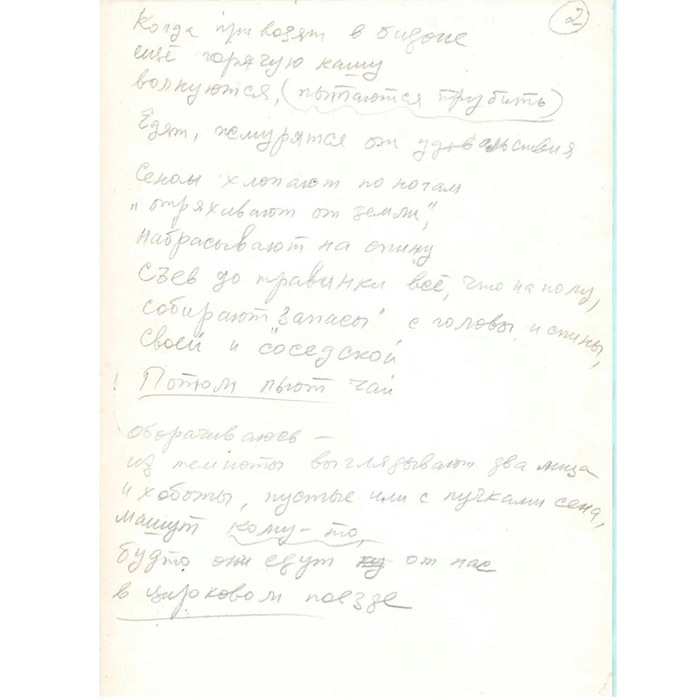 2
Когда привозят в бидоне
ещё горячую кашу
волнуются, (пытаются трубить)
Едят, жмурятся от удовольствия
Сеном хлопают по ногам
"отряхивают от земли",
набрасывают на спину
Съев до травинки всё, что на полу,
собирают "запасы" с головы и спины,
своей и "соседской"
! Потом пьют чай
оборачиваюсь –
из темноты выглядывают два лица
и хоботы, пустые или с пучками сена,
машут кому-то,
будто они едут от нас
в цирковом поезде